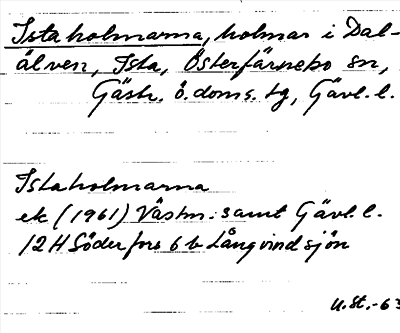 Istaholmarna, holmar i Dal-
älven, Ista, Österfärnebo sn,
Gästr. ö. doms. tg, Gävl. l.
Istaholmarna
ek (1961) Västm. samt Gävl. l.
12H Söderfors 6 b Långvindsjön
U.St.-63